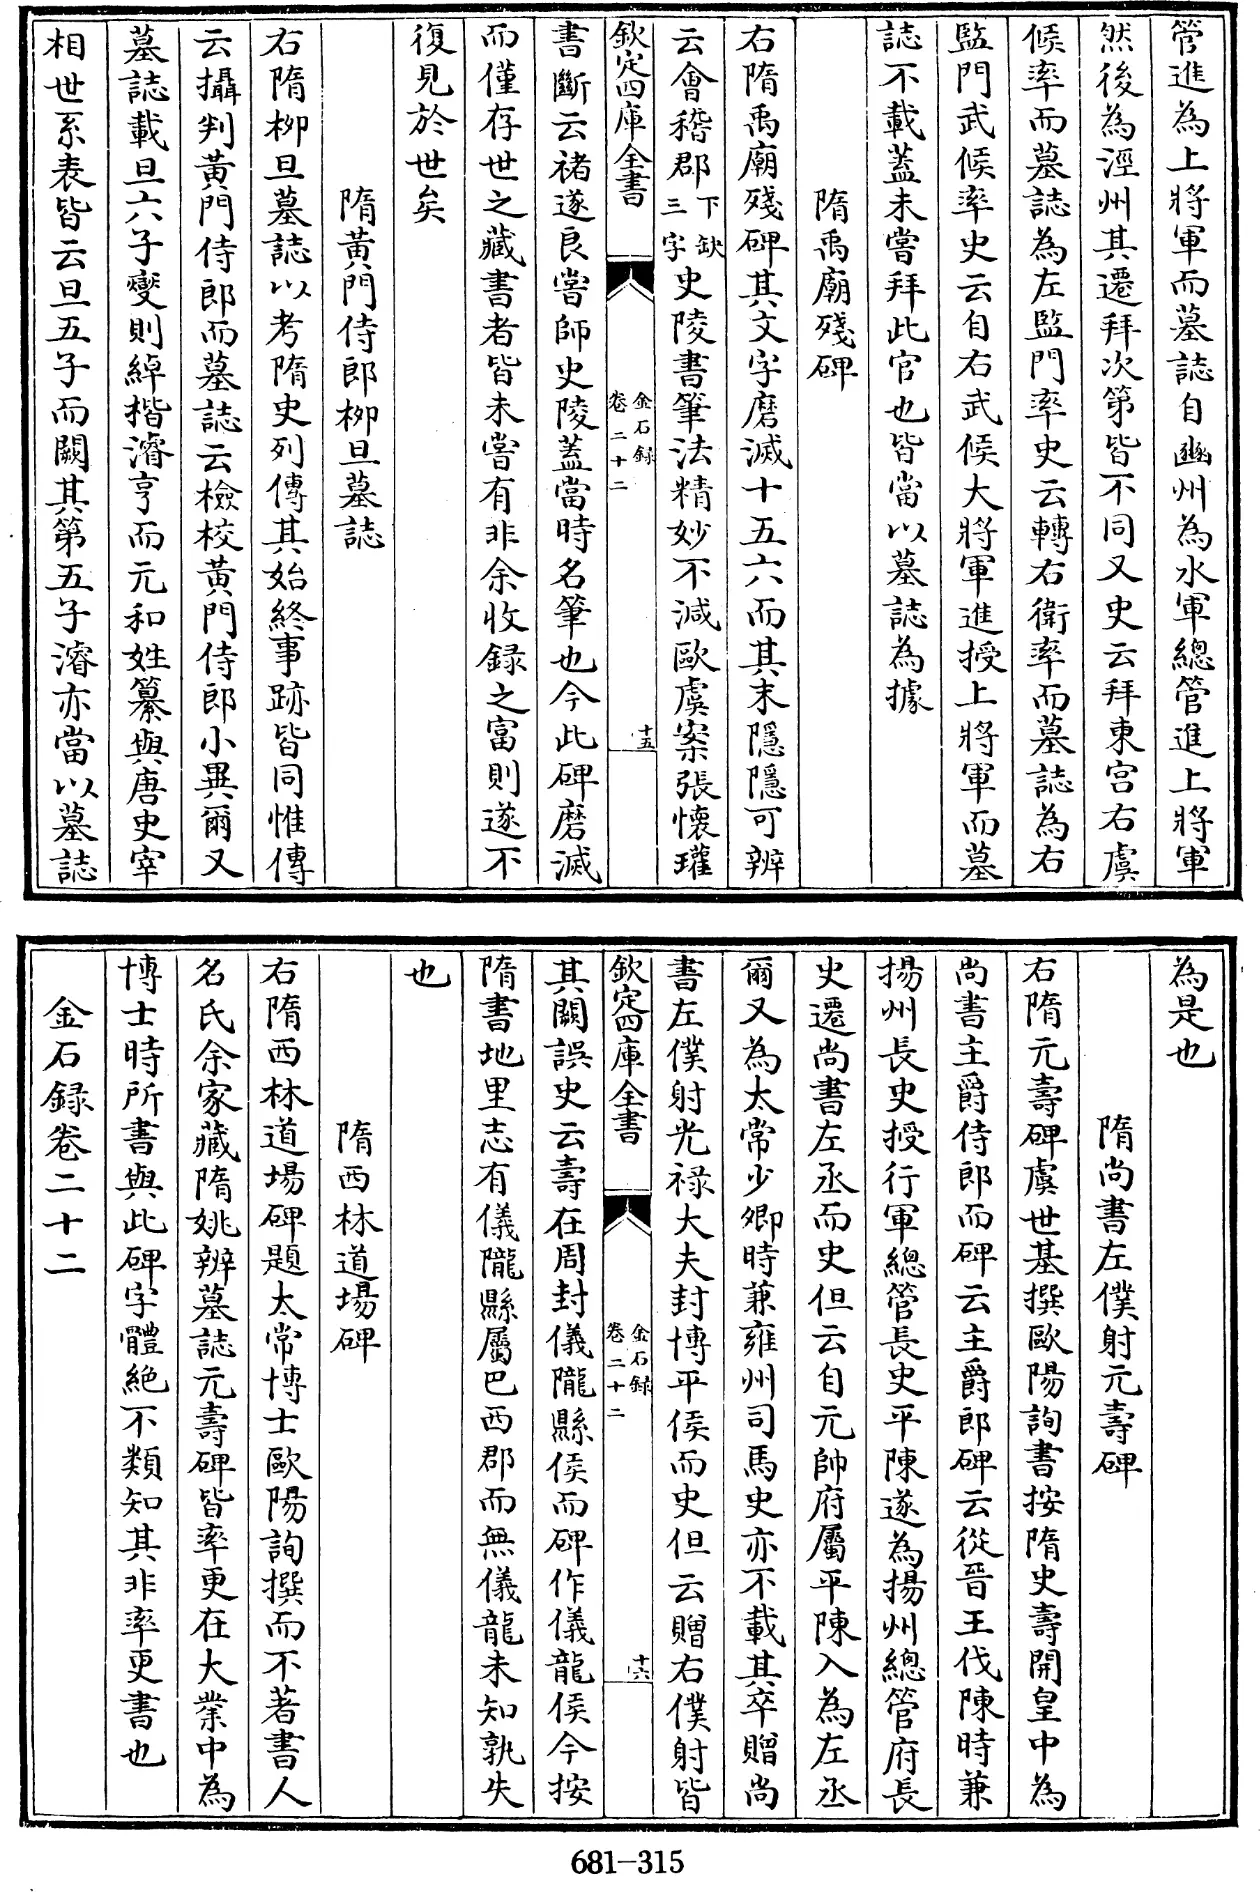 管進為上將軍而墓誌自豳州為水軍總管進上將軍
然後為涇州其遷拜次第皆不同又史云拜東宮右虞
候率而墓誌為左監門率史云轉右衛率而墓誌為右
監門武候率史云自右武候大將軍進授上將軍而墓
誌不載蓋未嘗拜此官也皆當以墓誌為據
隋禹廟殘碑
右隋禹廟殘碑其文字磨滅十五六而其末隱隱可辨
云會稽郡下缺三字史陵書筆法精妙不減歐虞案張懷瓘
欽定四庫全書
金石錄
卷二十二
十五
書斷云禇遂良嘗師史陵蓋當時名筆也今此碑磨滅
而僅存世之藏書者皆未嘗有非余收録之富則遂不
復見於世矣
隋黃門侍郎柳旦墓誌
右隋柳旦墓誌以考隋史列傳其始終事跡皆同惟傳
云攝判黃門侍郎而墓誌云檢校黃門侍郎小異爾又
墓誌載旦六子燮則綽揩濬亨而元和姓纂與唐史宰
相世系表皆云旦五子而闕其第五子濬亦當以墓誌
為是也
隋尚書左僕射元壽碑
右隋元壽碑虞世基撰歐陽詢書按隋史壽開皇中為
尚書主爵侍郎而碑云主爵郎碑云從晉王伐陳時兼
揚州長史授行軍總管長史平陳遂為揚州總管府長
史遷尚書左丞而史但云自元帥府屬平陳入為左丞
爾又為太常少卿時兼雍州司馬史亦不載其卒贈尚
書左僕射光祿大夫封博平侯而史但云贈右僕射皆
欽定四庫全書
金石録
卷二十二
十六
其闕誤史云壽在周封儀隴縣侯而碑作儀龍侯今按
隋書地里志有儀隴縣屬巴西郡而無儀龍未知孰失
也
隋西林道場碑
右隋西林道場碑題太常博士歐陽詢撰而不著書人
名氏余家藏隋姚辨墓誌元壽碑皆率更在大業中為
博士時所書與此碑字體絶不類知其非率更書也
金石録卷二十二
681-315